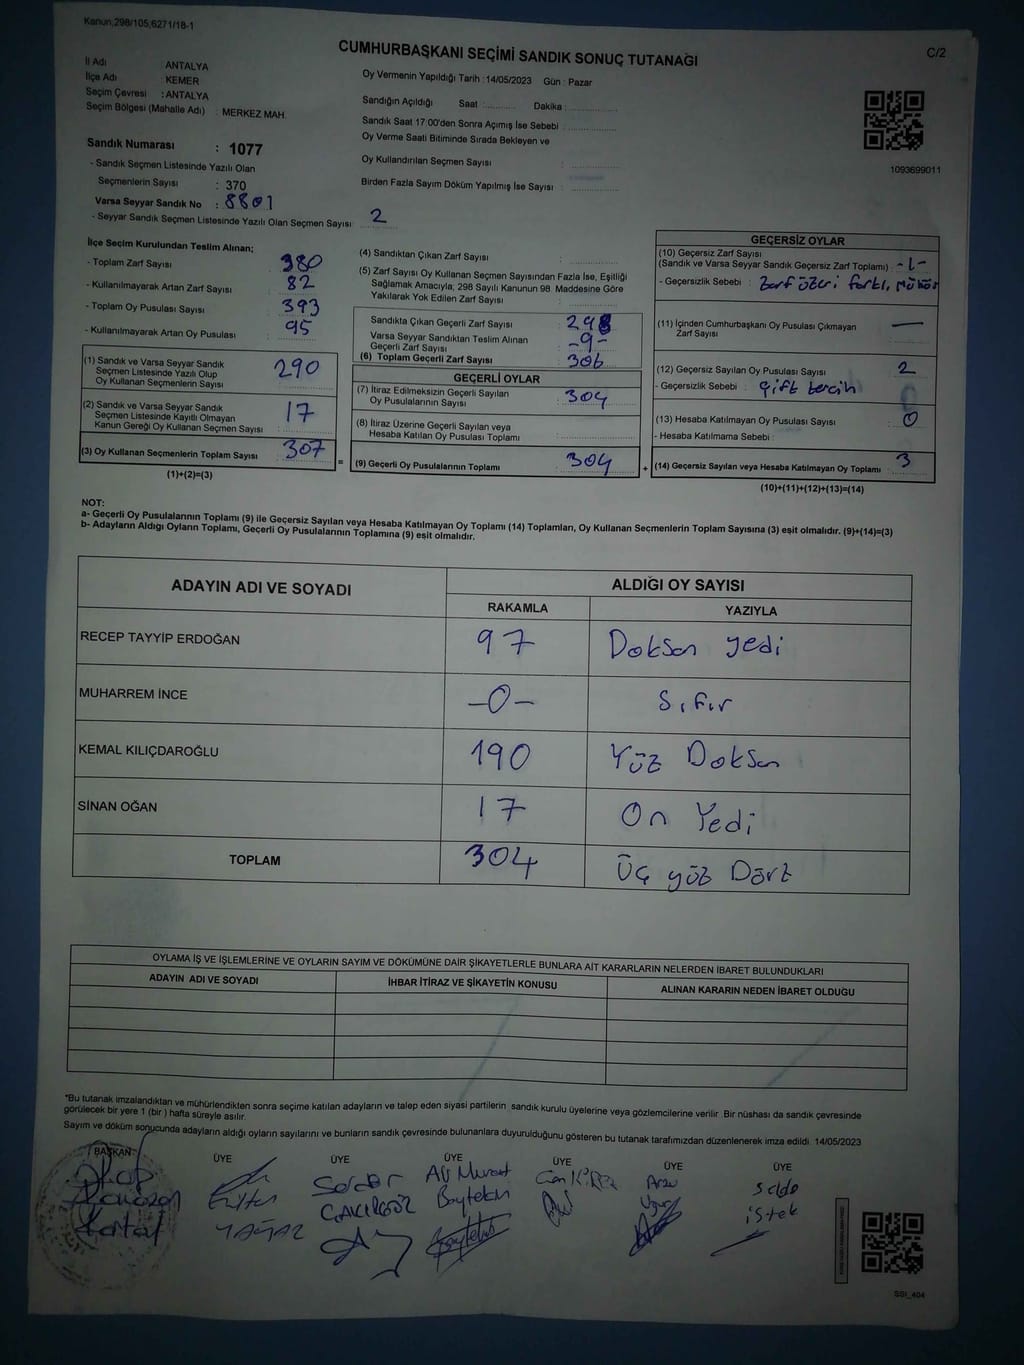 Kanun,298/105,6271/18-1
CUMHURBAŞKANI SEÇİMİ SANDIK SONUÇ TUTANAĞI
C/2
İl Adı : ANTALYA
İlçe Adı : KEMER
Seçim Çevresi : ANTALYA
Seçim Bölgesi (Mahalle Adı) : MERKEZ MAH.
Oy Vermenin Yapıldığı Tarih : 14/05/2023 Gün : Pazar
Sandığın Açıldığı Saat :.......... Dakika :..........
Sandık Saat 17:00'den Sonra Açımış İse Sebebi :
Oy Verme Saati Bitiminde Sırada Bekleyen ve
Oy Kullandırılan Seçmen Sayısı :
Birden Fazla Sayım Döküm Yapılmış İse Sayısı :
1093699011
Sandık Numarası : 1077
- Sandık Seçmen Listesinde Yazılı Olan
Seçmenlerin Sayısı : 370
Varsa Seyyar Sandık No : 8801
- Seyyar Sandık Seçmen Listesinde Yazılı Olan Seçmen Sayısı : 2
İlçe Seçim Kurulundan Teslim Alınan;
- Toplam Zarf Sayısı : 380
- Kullanılmayarak Artan Zarf Sayısı : 82
- Toplam Oy Pusulası Sayısı : 393
- Kullanılmayarak Artan Oy Pusulası : 95
(1) Sandık ve Varsa Seyyar Sandık
Seçmen Listesinde Yazılı Olup
Oy Kullanan Seçmenlerin Sayısı : 290
(2) Sandık ve Varsa Seyyar Sandık
Seçmen Listesinde Kayıtlı Olmayan
Kanun Gereği Oy Kullanan Seçmen Sayısı : 17
(3) Oy Kullanan Seçmenlerin Toplam Sayısı : 307
(1)+(2)=(3)
(4) Sandıktan Çıkan Zarf Sayısı :
(5) Zarf Sayısı Oy Kullanan Seçmen Sayısından Fazla İse, Eşitliği
Sağlamak Amacıyla; 298 Sayılı Kanunun 98. Maddesine Göre
Yakılarak Yok Edilen Zarf Sayısı :
Sandıkta Çıkan Geçerli Zarf Sayısı : 298
Varsa Seyyar Sandıktan Teslim Alınan
Geçerli Zarf Sayısı : -9-
(6) Toplam Geçerli Zarf Sayısı : 306
GEÇERLİ OYLAR
(7) İtiraz Edilmeksizin Geçerli Sayılan
Oy Pusulalarının Sayısı : 304
(8) İtiraz Üzerine Geçerli Sayılan veya
Hesaba Katılan Oy Pusulası Toplamı :
= (9) Geçerli Oy Pusulalarının Toplamı : 304
GEÇERSİZ OYLAR
(10) Geçersiz Zarf Sayısı
(Sandık ve Varsa Seyyar Sandık Geçersiz Zarf Toplamı) : -1-
- Geçersizlik Sebebi : Zarf üzeri farklı, mühür
(11) İçinden Cumhurbaşkanı Oy Pusulası Çıkmayan
Zarf Sayısı : —
(12) Geçersiz Sayılan Oy Pusulası Sayısı : 2
- Geçersizlik Sebebi : Çift tercih
(13) Hesaba Katılmayan Oy Pusulası Sayısı : 0
- Hesaba Katılmama Sebebi :
+ (14) Geçersiz Sayılan veya Hesaba Katılmayan Oy Toplamı : 3
(10)+(11)+(12)+(13)=(14)
NOT:
a- Geçerli Oy Pusulalarının Toplamı (9) ile Geçersiz Sayılan veya Hesaba Katılmayan Oy Toplamı (14) Toplamları, Oy Kullanan Seçmenlerin Toplam Sayısına (3) eşit olmalıdır. (9)+(14)=(3)
b- Adayların Aldığı Oyların Toplamı, Geçerli Oy Pusulalarının Toplamına (9) eşit olmalıdır.
ADAYIN ADI VE SOYADI
ALDIĞI OY SAYISI
RAKAMLA YAZIYLA
RECEP TAYYİP ERDOĞAN 97 Doksan yedi
MUHARREM İNCE -0- Sıfır
KEMAL KILIÇDAROĞLU 190 Yüz Doksan
SİNAN OĞAN 17 On Yedi
TOPLAM 304 Üç yüz Dört
OYLAMA İŞ VE İŞLEMLERİNE VE OYLARIN SAYIM VE DÖKÜMÜNE DAİR ŞİKAYETLERLE BUNLARA AİT KARARLARIN NELERDEN İBARET BULUNDUKLARI
ADAYIN ADI VE SOYADI İHBAR İTİRAZ VE ŞİKAYETİN KONUSU ALINAN KARARIN NEDEN İBARET OLDUĞU
*Bu tutanak imzalandıktan ve mühürlendikten sonra seçime katılan adayların ve talep eden siyasi partilerin sandık kurulu üyelerine veya gözlemcilerine verilir. Bir nüshası da sandık çevresinde
görülecek bir yere 1 (bir) hafta süreyle asılır.
Sayım ve döküm sonucunda adayların aldığı oyların sayılarını ve bunların sandık çevresinde bulunanlara duyurulduğunu gösteren bu tutanak tarafımızdan düzenlenerek imza edildi. 14/05/2023
BAŞKAN ÜYE ÜYE ÜYE ÜYE ÜYE ÜYE
Ramazan Kartal
YAĞAZ
Serdar ÇAKIRGÖZ
Av Murat Baytekin
Can KİREZ
Arzu
Selda istek
SSI_404